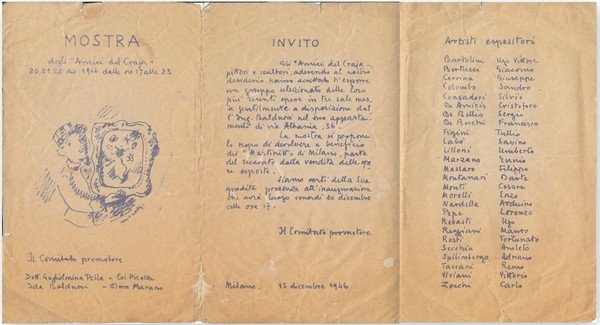 MOSTRA
degli "Amici del Craja"
20,21,22 dic 1946 dalle ore 17 alle 23
Il Comitato promotore
Dott. Guglielmina Pella - Evi
Ida Balducci - Dora Marano
INVITO
Gli "Amici del Craja",
pittori e scultori, aderendo al nostro
desiderio hanno accettato d'esporre
un gruppo selezionato delle loro
più recenti opere in tre sale mes-
se gentilmente a disposizione dal
l'Ing. Balducci nel suo apparta-
mento di via Albania, 36.
La mostra si propone
lo scopo di devolvere a beneficio
dei "Martinitt" di Milano, parte
del ricavato della vendita delle ope
re esposte.
Siamo certi della Sua
gradita presenza all'inaugurazione
che avrà luogo venerdì 20 dicembre
alle ore 17.
Il Comitato promotore
Milano. 15 dicembre 1946
Artisti espositori
Bartolini Ugo Vittore
Bertucci Giacomo
Cerrina Giuseppe
Colombo Sandro
Consadori Silvio
De Amicis Cristoforo
De Bellis Sergio
De Rocchi Francesco
Figini Tullio
Labò Savino
Lilloni Umberto
Marzano Ennio
Massaro Filippo
Montanari Dante
Monti Cesare
Morelli Enzo
Nardella Arduino
Pepe Lorenzo
Rebasti Ugo
Reggiani Mauro
Rosti Fortunato
Secchia Amleto
Spilimbergo Adriano
Taccani Remo
Viviani Vittorio
Zocchi Carlo